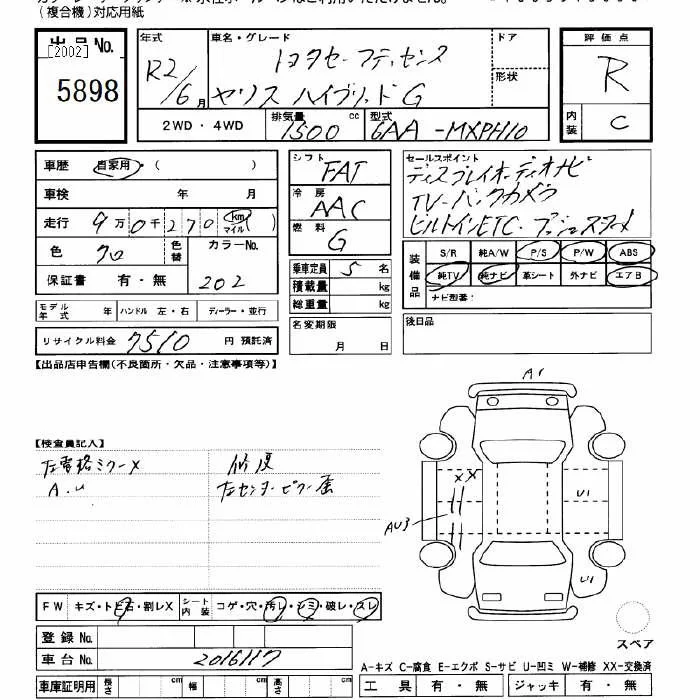 (複合機)対応用紙
出品No.
[2002]
5898
年式
R2/6月
車名・グレード
トヨタセーフティセンス
ヤリス ハイブリッド G
ドア
形状
2WD・4WD
排気量
1500 cc
型式
6AA-MXPH10
評価点
R
内装
C
車歴 自家用・( )
車検 年 月
走行 9万0千270 km マイル
色 クロ 色替
カラーNo.
202
保証書 有・無
モデル年式 年 ハンドル 左・右 ディーラー・並行
リサイクル料金 7510 円 預託済
シフト
FAT
冷房
AAC
燃料
G
乗車定員 5 名
積載量 kg
総重量 kg
名変期限
月 日
セールスポイント
ディスプレイオーディオナビ
TV・バックカメラ
ビルトインETC・プッシュスタート
装備品
S/R 純A/W P/S P/W ABS
純TV 純ナビ 革シート 外ナビ エアB
ナビ型番:
後日品
【出品店申告欄(不良箇所・欠品・注意事項等)】
【検査員記入】
左電格ミラーX
A.U
修復
左センターピラー歪
A1
XX
AU3
U1
U1
FW キズ・トビ石・割レX
シート内装 コゲ・穴・汚レ・シミ・破レ・スレ
登録No.
車台No. 2016117
車庫証明用 長さ cm 幅 cm 高さ cm
スペア
A-キズ C-腐食 E-エクボ S-サビ U-凹ミ W-補修 XX-交換済
工具 有・無 ジャッキ 有・無